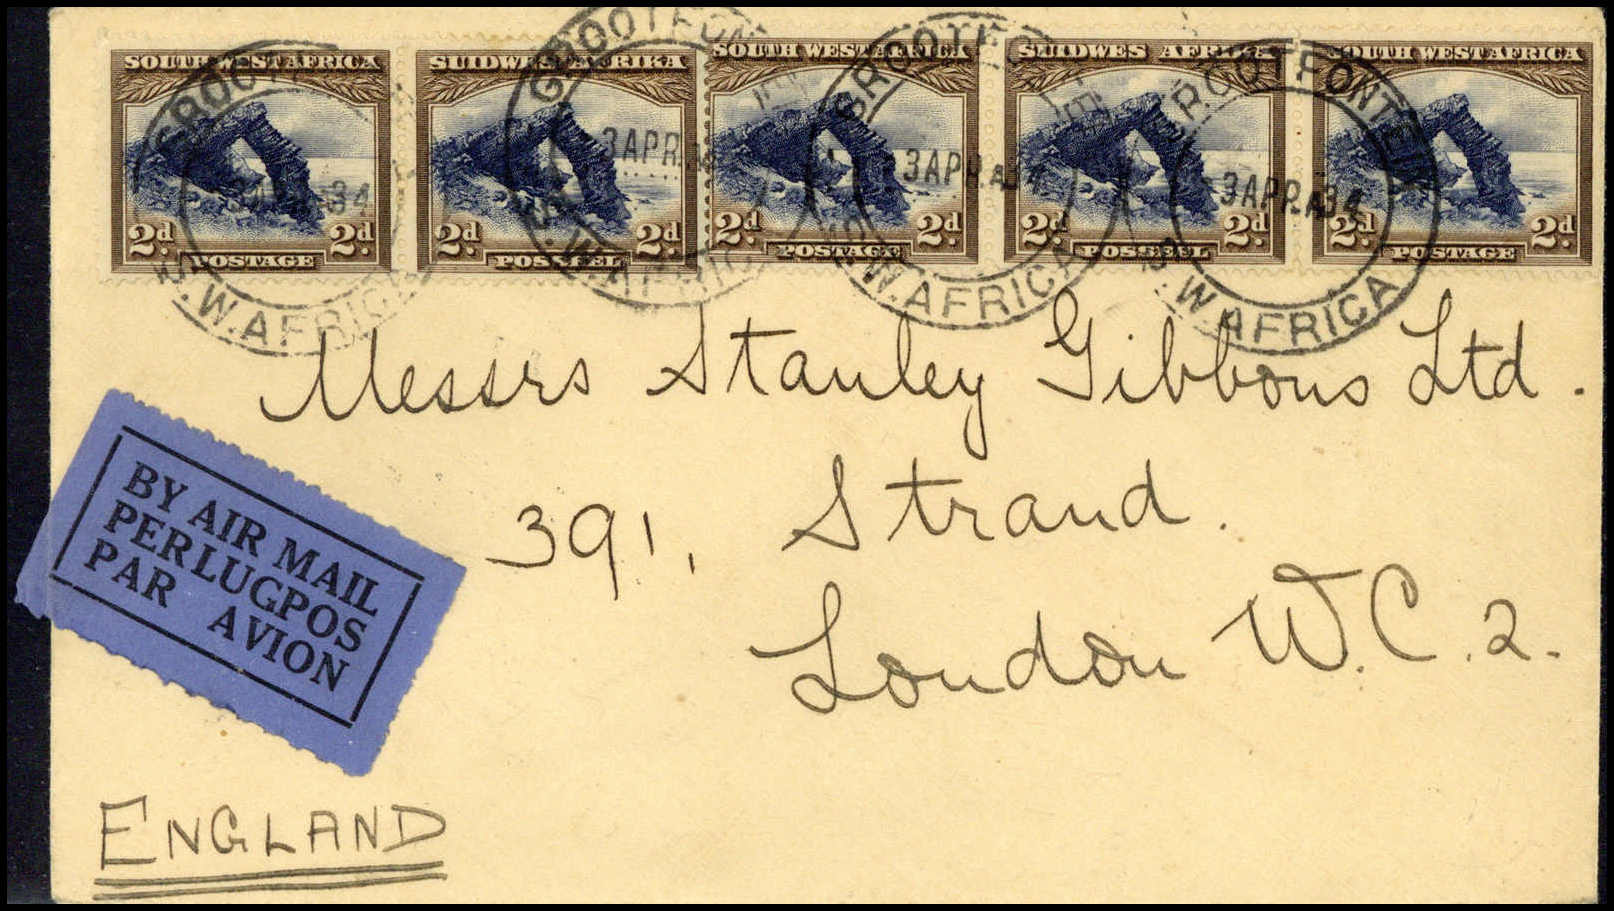 SOUTH WEST AFRICA
2d. 2d.
POSTAGE
SUIDWES AFRIKA
2d. 2d.
POSSEËL
SOUTH WEST AFRICA
2d. 2d.
POSTAGE
SUIDWES AFRIKA
2d. 2d.
POSSEËL
SOUTH WEST AFRICA
2d. 2d.
POSTAGE
GROOTFONTEIN
3 APR. 34
S.W. AFRICA
GROOTFONTEIN
3 APR. 34
S.W. AFRICA
GROOTFONTEIN
3 APR. 34
S.W. AFRICA
GROOTFONTEIN
3 APR. 34
S.W. AFRICA
Messrs Stanley Gibbons Ltd.
391, Strand.
London W.C.2.
BY AIR MAIL
PER LUGPOS
PAR AVION
ENGLAND